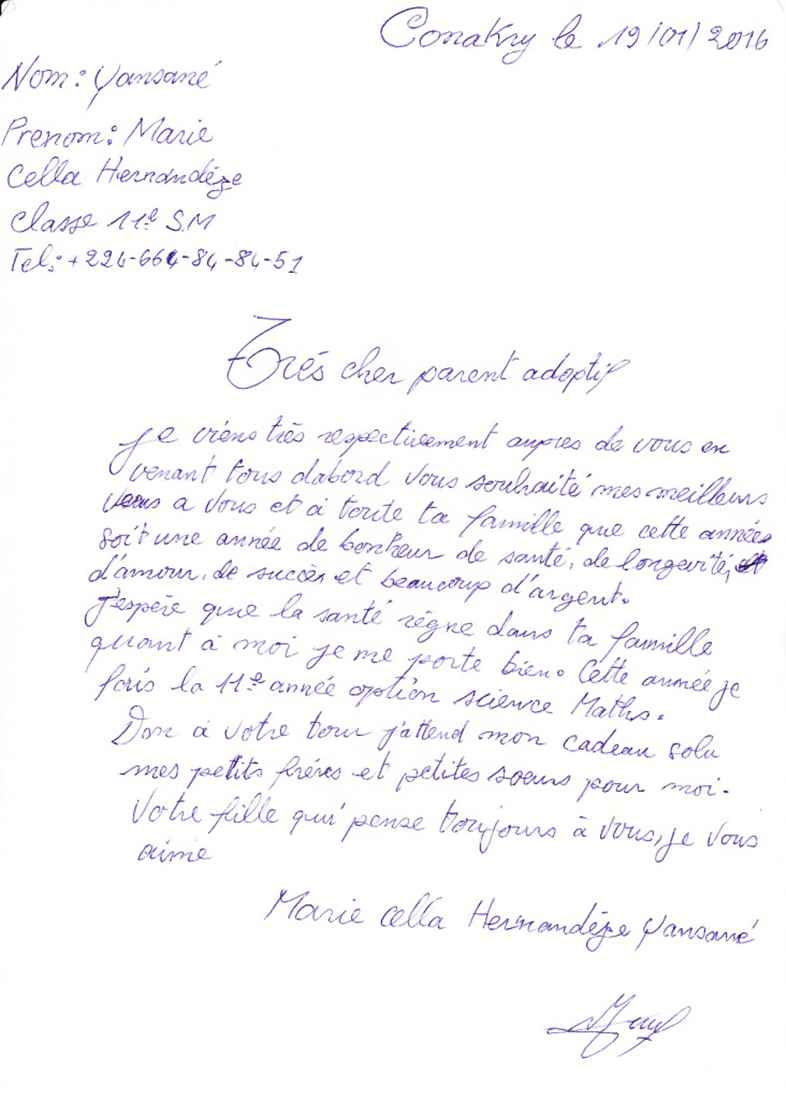 Conakry le 19/01/2016
Nom: Yansané
Prenom: Marie
Cella Hernandéze
Classe 11e S.M
Tel: +224-664-84-84-51
Trés cher parent adoptif
Je viens très respectivement aupres de vous en
venant tous dabord vous souhaité mes meilleurs
vœus a vous et à toute ta famille que cette années
soit une année de bonheur de santé, de longevité,
d'amour, de succès et beaucoup d'argent.
J'espère que la santé règne dans ta famille
quant à moi je me porte bien. Cette année je
fais la 11e année option science Maths.
Donc à votre tour j'attend mon cadeau salu
mes petits fréres et petites sœurs pour moi.
Votre fille qui pense toujours à vous, je vous
aime
Marie cella Hernandéze Yansané